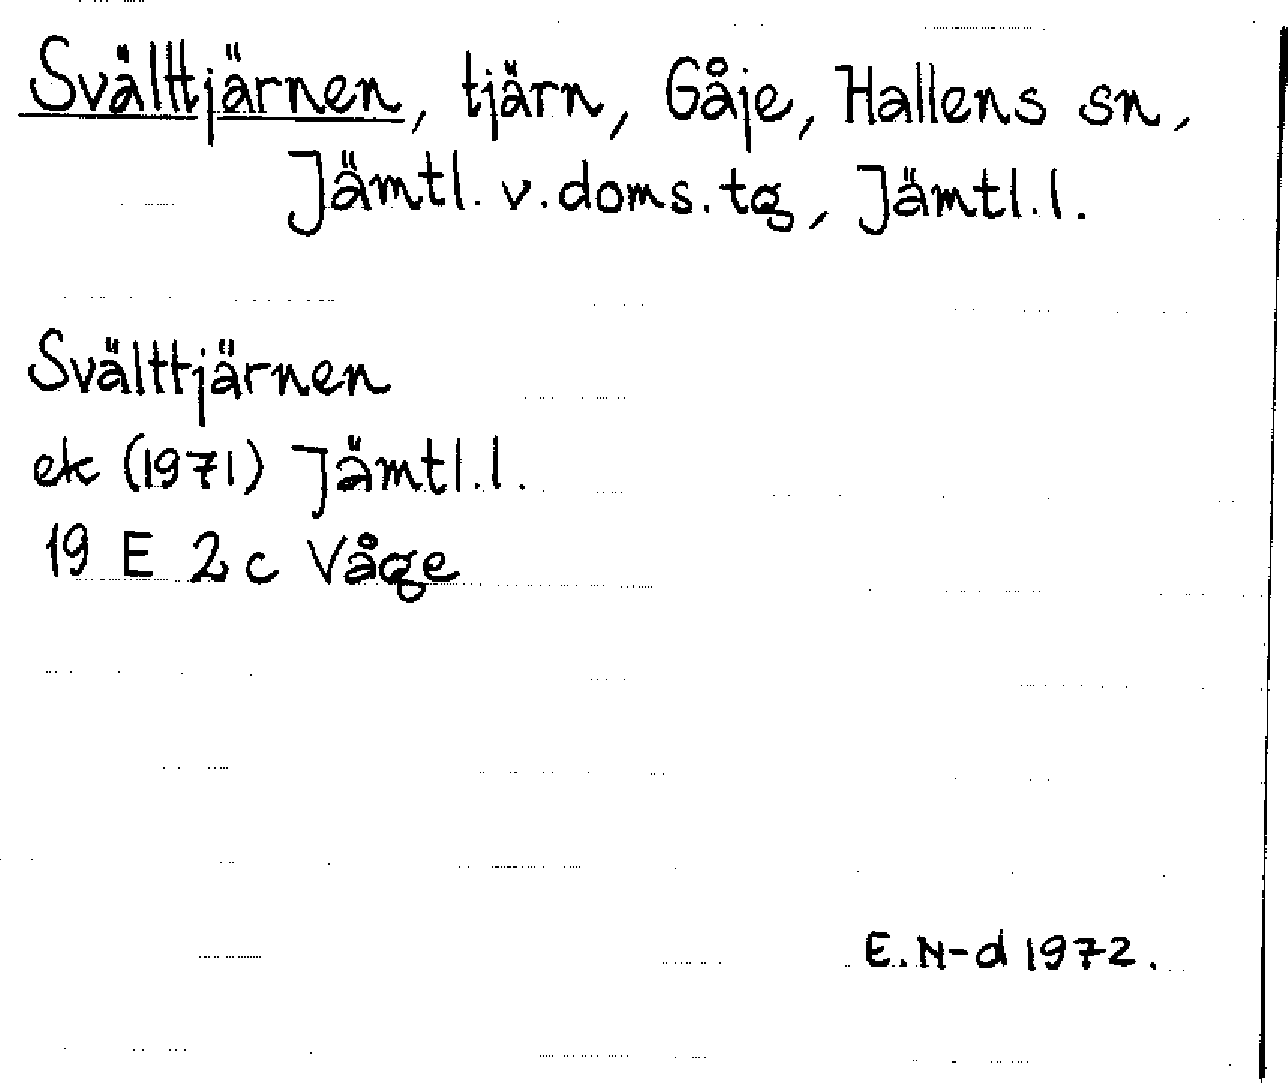 Svälttjärnen, tjärn, Gåje, Hallens sn,
Jämtl. v. doms. tg, Jämtl. l.
Svälttjärnen
ek (1971) Jämtl. l.
19 E 2 c Våge
E. N-d 1972.